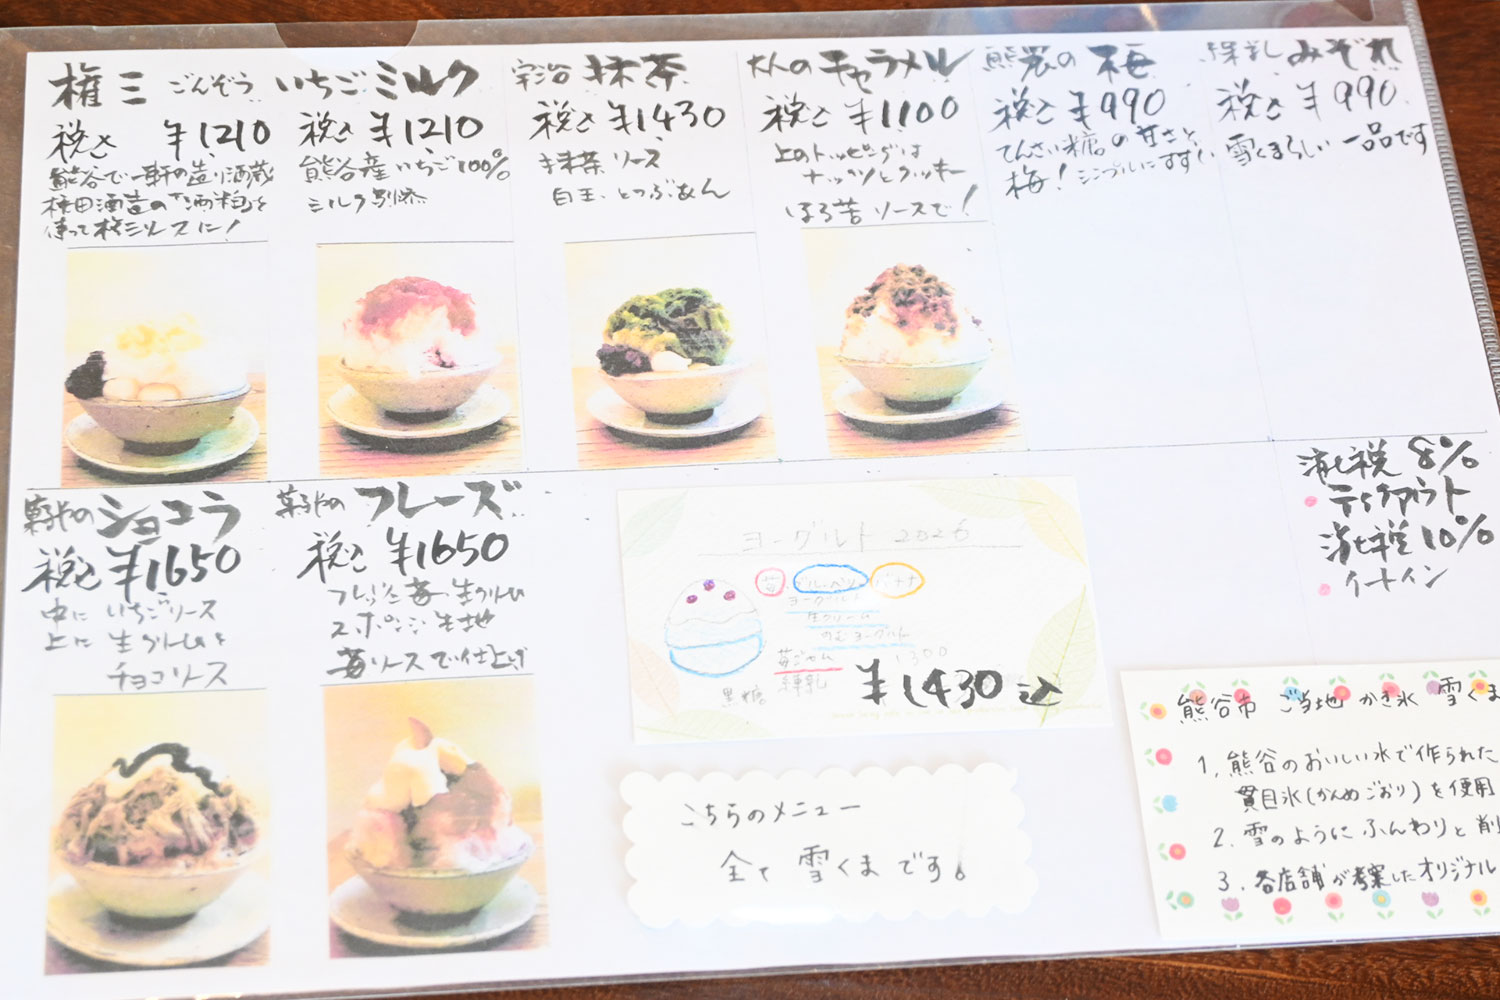 権三 ごんぞう
税込 ¥1210
熊谷で一軒の造り酒蔵
権田酒造の「酒粕」を
使って権三ソースに!
いちごミルク
税込 ¥1210
熊谷産いちご100%
ミルク別添
宇治 抹茶
税込 ¥1430
抹茶ソース
白玉、とつぶあん
大人のキャラメル
税込 ¥1100
上のトッピングは
ナッツとクッキー
ほろ苦ソースで!
の 梅
税込 ¥990
てんさい糖の甘さと
梅! シンプルにすすい
みぞれ
税込 ¥990
雪くまらしい一品です
の ショコラ
税込 ¥1650
中に いちごソース
上に 生クリームと
チョコソース
の フレーズ
税込 ¥1650
フレッシュ苺、生クリーム
スポンジ生地
苺ソースで仕上げ
ヨーグルト 2026
苺 ブルーベリー バナナ
ヨーグルト
生クリーム
のむヨーグルト
苺ジャム 1300
練乳
黒糖
¥1430込
消費税 8%
テイクアウト
消費税 10%
イートイン
こちらのメニュー
全て 雪くまです。
熊谷市 ご当地 かき氷 雪くま
1. 熊谷のおいしい水で作られた
貫目氷(かんめごおり)を使用
2. 雪のように ふんわりと 削
3. 各店舗が考案したオリジナル